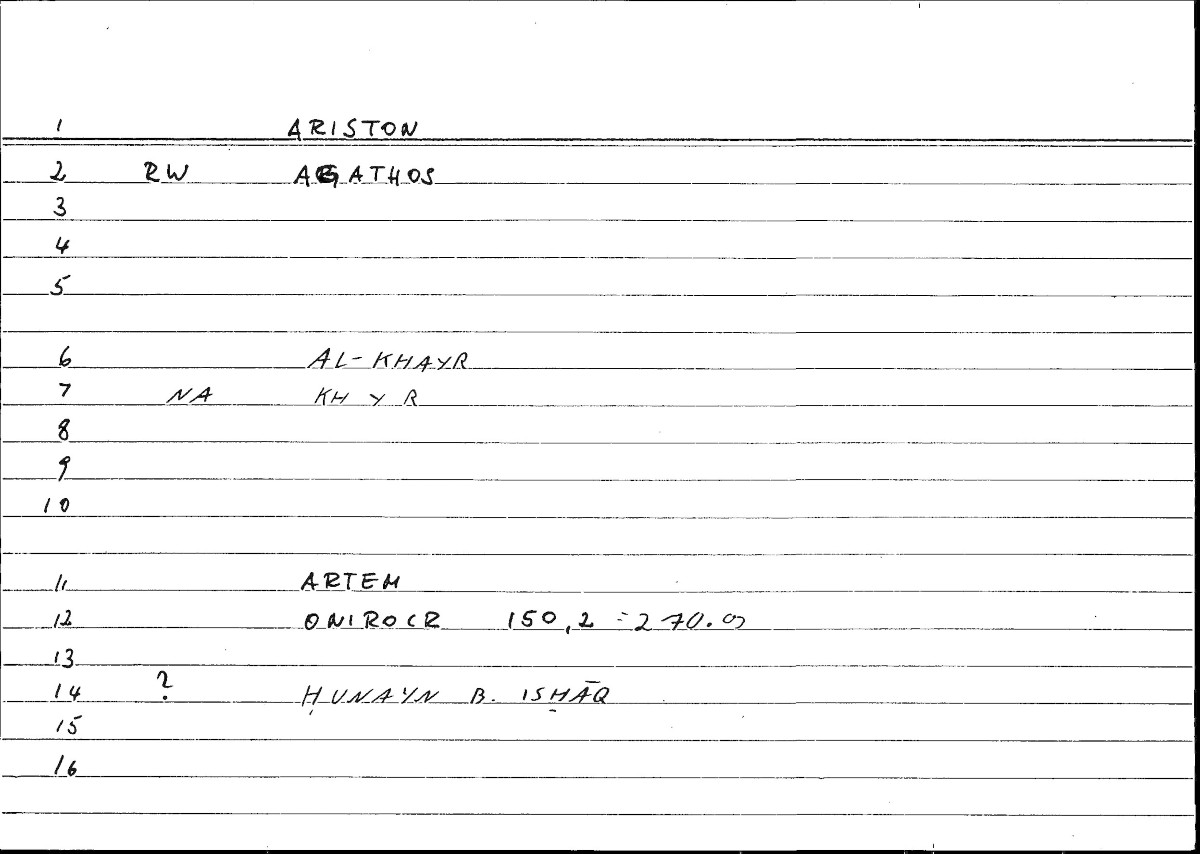 1 ARISTON
2 RW AGATHOS
3
4
5
6 AL-KHAYR
7 NA KH Y R
8
9
10
11 ARTEM
12 ONIROCR 150,2 = 270.
13
14 ? ḤUNAYN B. ISḤĀQ
15
16